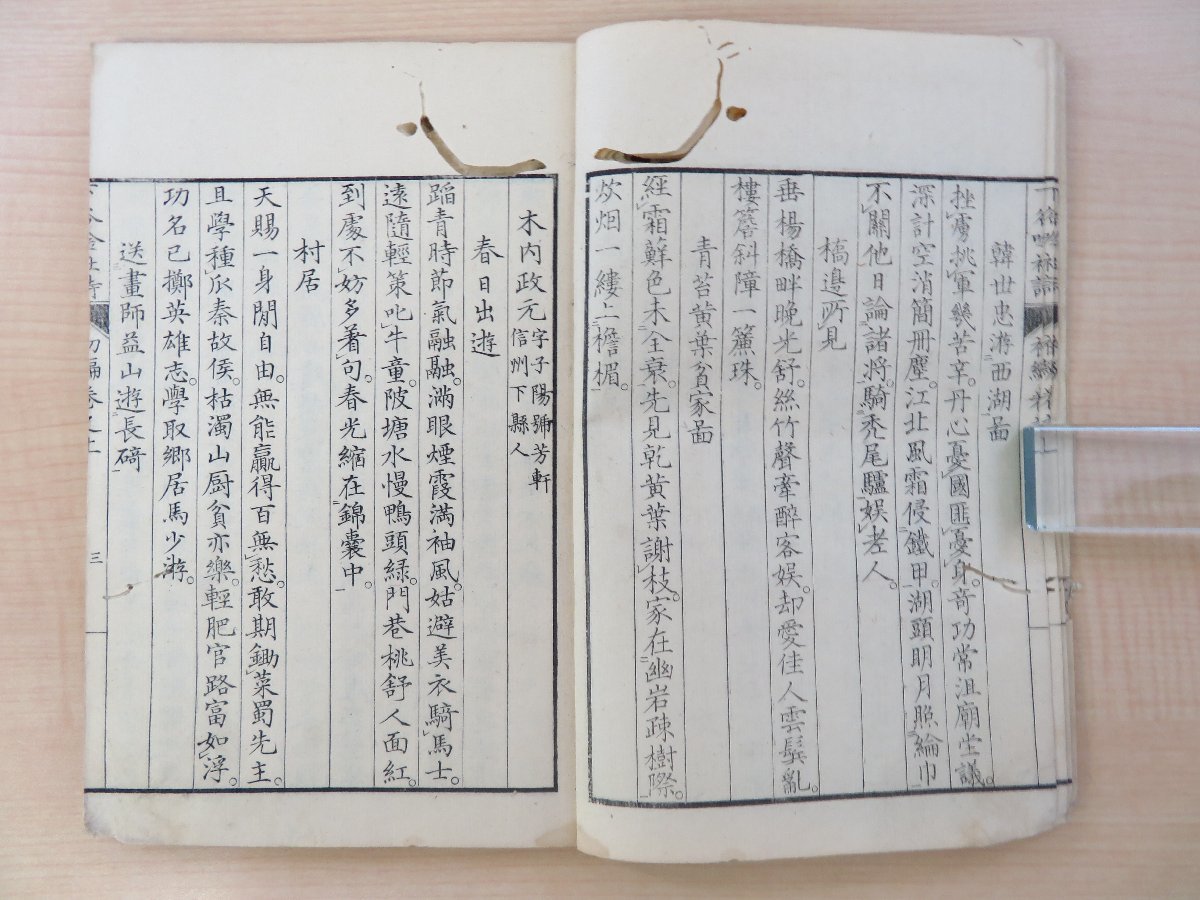 韓世忠游西湖啚
挫虜挑軍幾苦辛。丹心憂國匪憂身。奇功常沮廟堂議。
深計空消簡冊塵。江北風霜侵鐵甲。湖頭明月照綸巾。
不關他日論諸將。騎禿尾驢娛老人。
橋邊所見
垂楊橋畔晚光舒。絲竹聲牽醉客娱。却愛佳人雲鬓亂。
樓簷斜障一簾珠。
青苔黄葉貧家啚
經霜蘚色未全衰。先見乾黄葉謝枝。家在幽岩疎樹際。
炊烟一縷上檐楣。
木内政元 字子陽號芳軒
信州下縣人
春日出遊
蹈青時節氣融融。滿眼煙霞満袖風。姑避美衣騎馬士。
遠隨輕策叱牛童。陂塘水慢鴨頭緑。門巷桃舒人面紅。
到處不妨多着句。春光縮在錦囊中。
村居
天賜一身閒自由。無能贏得百無愁。敢期鋤菜蜀先主。
且學種瓜秦故侯。枯濁山厨貧亦樂。輕肥官路富如浮。
功名已擲英雄志。學取鄉居馬少游。
送畫師益山遊長碕
三